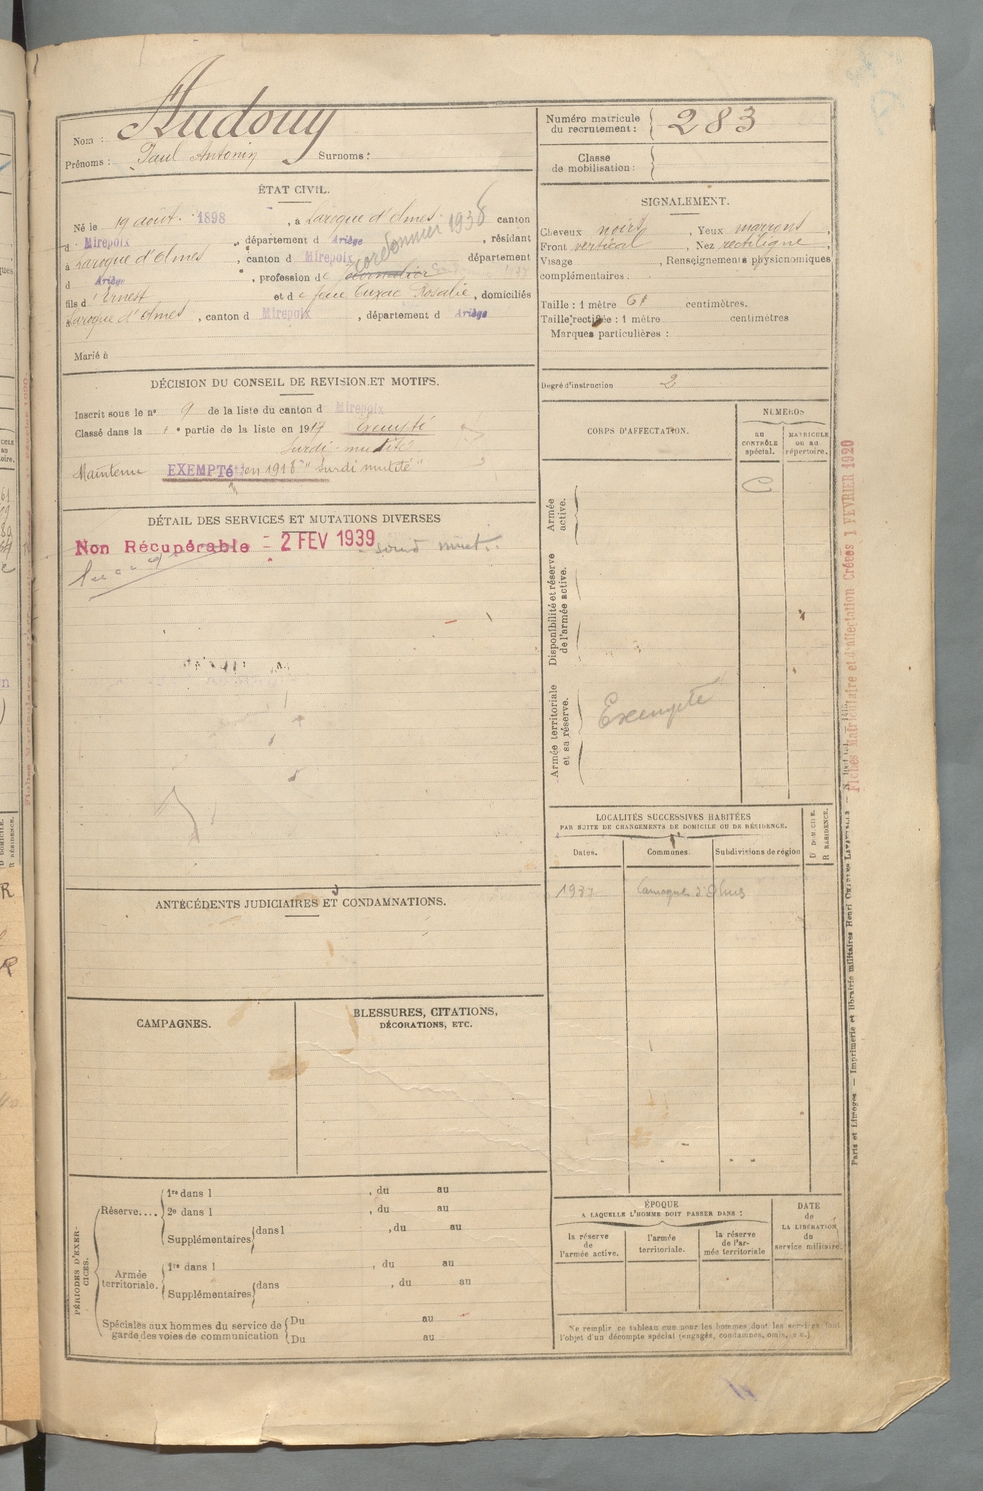 Nom : Audouy
Prénoms : Paul Antonin Surnoms :
Numéro matricule du recrutement : 283
Classe de mobilisation :
ÉTAT CIVIL.
Né le 19 août 1898, à Laroque d'Olmes canton
d Mirepoix, département d Ariège, résidant
à Laroque d'Olmes, canton d Mirepoix département
d Ariège, profession de
cordonnier 1938
fils d'Ernest et de feue Cuxac Rosalie, domiciliés
Laroque d'Olmes, canton d Mirepoix, département d Ariège
Marié à
SIGNALEMENT.
Cheveux noirs, Yeux marrons,
Front vertical, Nez rectiligne,
Visage , Renseignements physionomiques
complémentaires :
Taille : 1 mètre 61 centimètres.
Taille rectifiée : 1 mètre centimètres
Marques particulières :
Degré d'instruction 2
DÉCISION DU CONSEIL DE REVISION ET MOTIFS.
Inscrit sous le n° 9 de la liste du canton d Mirepoix
Classé dans la 1e partie de la liste en 1917 exempté
surdi-mutité
Maintenu EXEMPTé en 1918 "Surdi mutité"
DÉTAIL DES SERVICES ET MUTATIONS DIVERSES
Non Récupérable - 2 FEV 1939 sourd muet.
CORPS D'AFFECTATION.
NUMÉROS
AU CONTRÔLE spécial.
MATRICULE OU AU répertoire.
Armée active.
Disponibilité et réserve de l'armée active.
Armée territoriale et sa réserve.
Exempté
LOCALITÉS SUCCESSIVES HABITÉES
PAR SUITE DE CHANGEMENTS DE DOMICILE OU DE RÉSIDENCE.
Dates. Communes Subdivisions de région
D DOMICILE.
R RÉSIDENCE.
1937 Laroque d'Olmes
ANTÉCÉDENTS JUDICIAIRES ET CONDAMNATIONS.
CAMPAGNES.
BLESSURES, CITATIONS,
DÉCORATIONS, ETC.
PÉRIODES D'EXERCICES.
Réserve....
1re dans l , du au
2e dans l , du au
Supplémentaires dans l , du au
Armée territoriale.
1re dans l , du au
Supplémentaires dans , du au
Spéciales aux hommes du service de
garde des voies de communication
Du au
Du au
ÉPOQUE
A LAQUELLE L'HOMME DOIT PASSER DANS :
la réserve de l'armée active.
l'armée territoriale.
la réserve de l'armée territoriale
DATE de LA LIBÉRATION du service militaire.
Ne remplir ce tableau que pour les hommes dont les services font
l'objet d'un décompte spécial (engagés, condamnés, omis, etc.)
Fiches Matriculaire et d'affectation Créées 1 FEVRIER 1920
Paris et Limoges — Imprimerie et librairie militaires Henri CHARLES-LAVAUZELLE